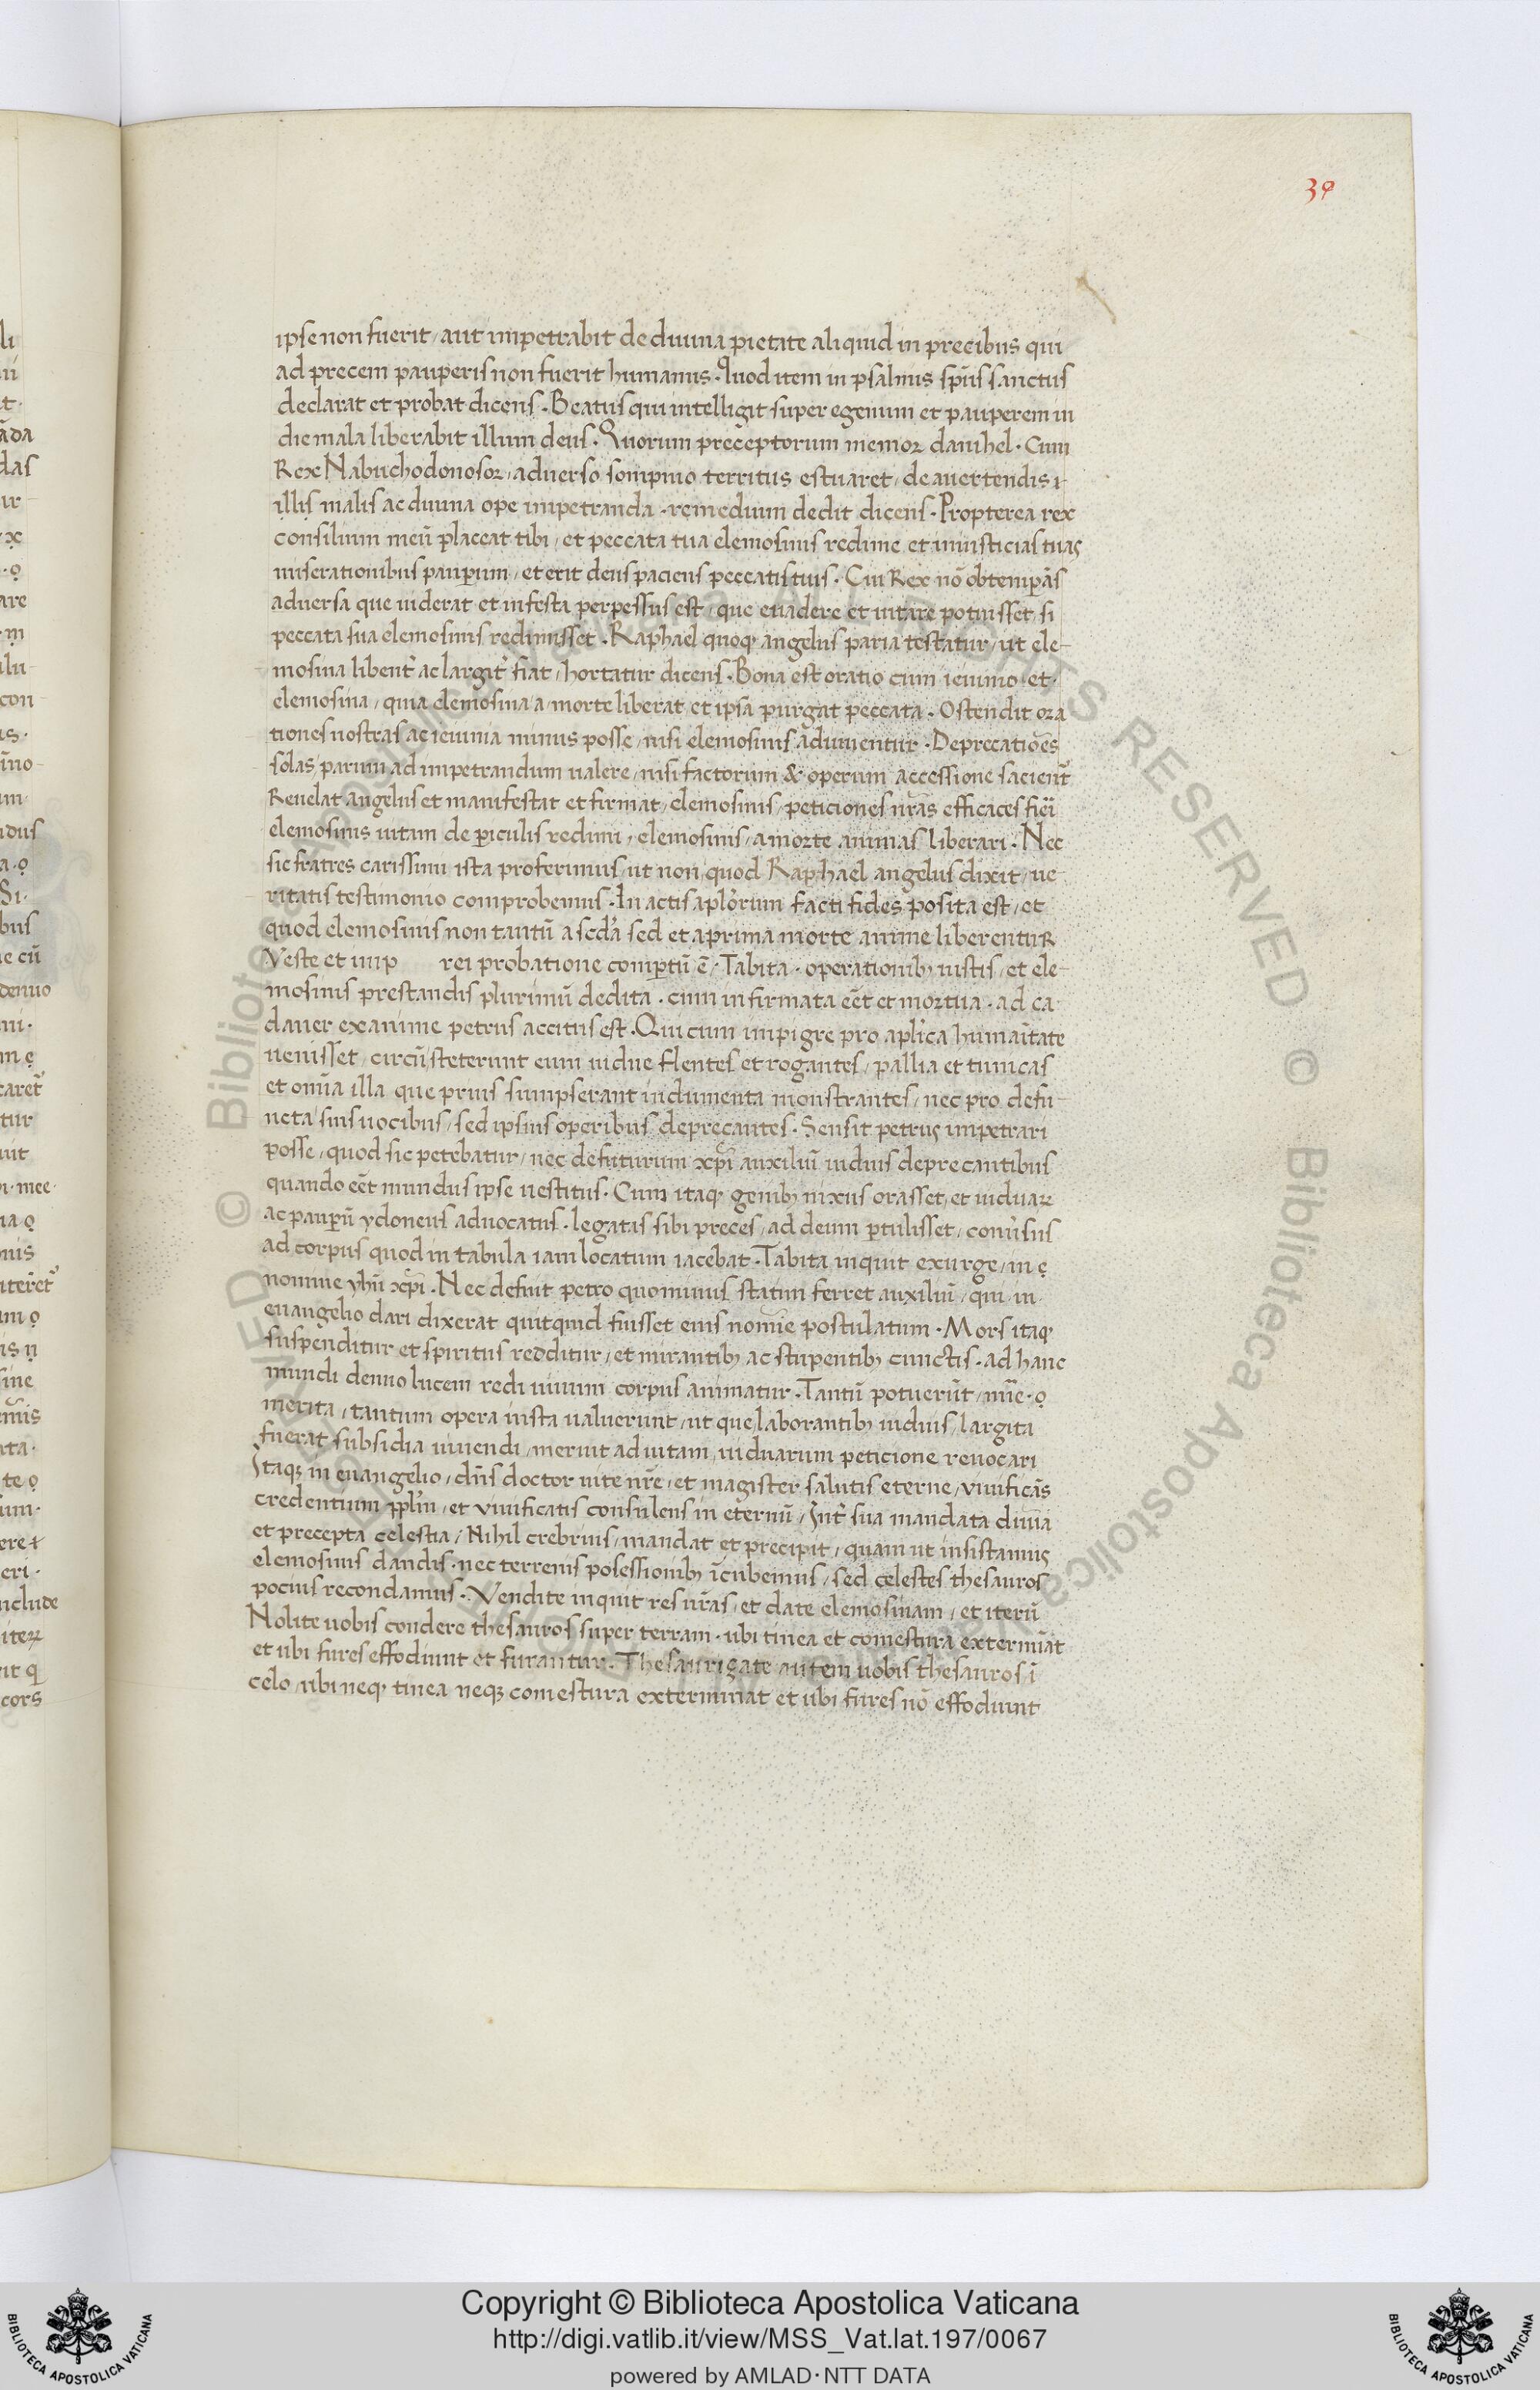 39
ipse non fuerit / aut impetrabit de diuina pietate aliquid in precibus qui
ad precem pauperis non fuerit humanus . Quod item in psalmis sp̄us sanctus
declarat et probat dicens . Beatus qui intelligit super egenum et pauperem in
die mala liberabit illum deus . Quorum preceptorum memor danihel . Cum
Rex Nabuchodonosor / aduerso sompnio territus estuaret / de auertendis i
illis malis ac diuina ope impetranda . remedium dedit dicens . Propterea rex
consilium meū placeat tibi / et peccata tua elemosinis redime et iniusticias tuas
miserationibus paupum / et erit deus paciens peccatis tuis . Cui Rex nō obtempās
aduersa que uiderat et infesta perpessus est / que euadere et uitare potuisset / si
peccata sua elemosinis redimisset . Raphael quoq angelus paria testatur / ut ele-
mosina libent̓ ac largit̓ fiat / hortatur dicens . Bona est oratio cum ieiunio et
elemosina / quia elemosina a morte liberat et ipsa purgat peccata . Ostendit ora
tiones nostras ac ieiunia minus posse / nisi elemosinis adiuuentur . Deprecatiōes
solas parum ad impetrandum ualere / nisi factorum & operum accessione sacient̓
Reuelat angelus et manifestat et firmat / elemosinis / peticiones nr̄as efficaces fiēi
elemosinis uitam de piculis redimi / elemosinis / a morte animas liberari . Nec
sic fratres carissimi ista proferimus / ut non quod Raphael angelus dixit / ue
ritatis testimonio comprobemus . In actis apl̓orum facti fides posita est / et
quod elemosinis non tantū a scd̓a sed et a prima morte anime liberentur
Veste et imp rei probatione comptū ē / Tabita . operationib; iustis / et ele-
mosinis prestandis plurimū dedita . cum infirmata eēt et mortua . ad ca
dauer exanime petrus accitus est . Qui cum impigre pro apl̓ica humāitate
uenisset / circūsteterunt eum uidue flentes et rogantes / pallia et tunicas
et omīa illa que prius sumpserant indumenta monstrantes / nec pro defu-
ncta suis uocibus / sed ipsius operibus deprecantes . Sensit petrus impetrari
posse / quod sic petebatur / nec defuturum xp̄i auxiliū uiduis deprecantibus
quando eēt mundus ipse uestitus . Cum itaq genib; nixus orasset / et uiduaꝝ
ac paupū ydoneus aduocatus . legatas sibi preces / ad deum ptulisset / conūsus
ad corpus quod in tabula iam locatum iacebat . Tabita inquit exurge / in ẹ
nomine yhū xp̄i . Nec defuit petro quominus statim ferret auxiliū / qui in
euangelio dari dixerat quitquid fuisset eius nomīe postulatum . Mors itaq
suspenditur et spiritus redditur / et mirantib; ac stupentib; cunctis . ad hanc
mundi denuo lucem rediuiuum corpus animatur . Tantū potuerūt / mīe . ọ
merita / tantum opera iusta ualuerunt / ut que laborantib; uiduis / largita
fuerat subsidia uiuendi / meruit ad uitam / uiduarum peticione reuocari
Itaq; in euangelio / dn̄s doctor uite nr̄e / et magister salutis eterne / viuificās
credentium ppl̓m / et viuificatis consulens in eternū / Int̓ sua mandata diuīa
et precepta celestia / Nihil crebrius / mandat et precipit / quam ut insistamus
elemosinis dandis . nec terrenis posessionib; īcubemus / sed celestes thesauros
pocius recondamus . Vendite inquit res ur̄as / et date elemosinam / et iterū
Nolite uobis condere thesauros super terram . ubi tinea et comestura extermīat
et ubi fures effodiunt et furantur . Thesaurigate autem uobis thesauros ī
celo / ubi neq tinea neq; comestura exterminat et ubi fures nō effodiunt
Copyright © Biblioteca Apostolica Vaticana
http://digi.vatlib.it/view/MSS_Vat.lat.197/0067
powered by AMLAD·NTT DATA